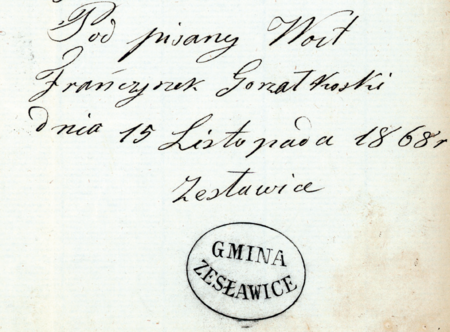 Pod pisany Woit
Frańczyszek Gorzałkoski
dnia 15 Listopada 1868r
Zesławice
GMINA
ZESŁAWICE